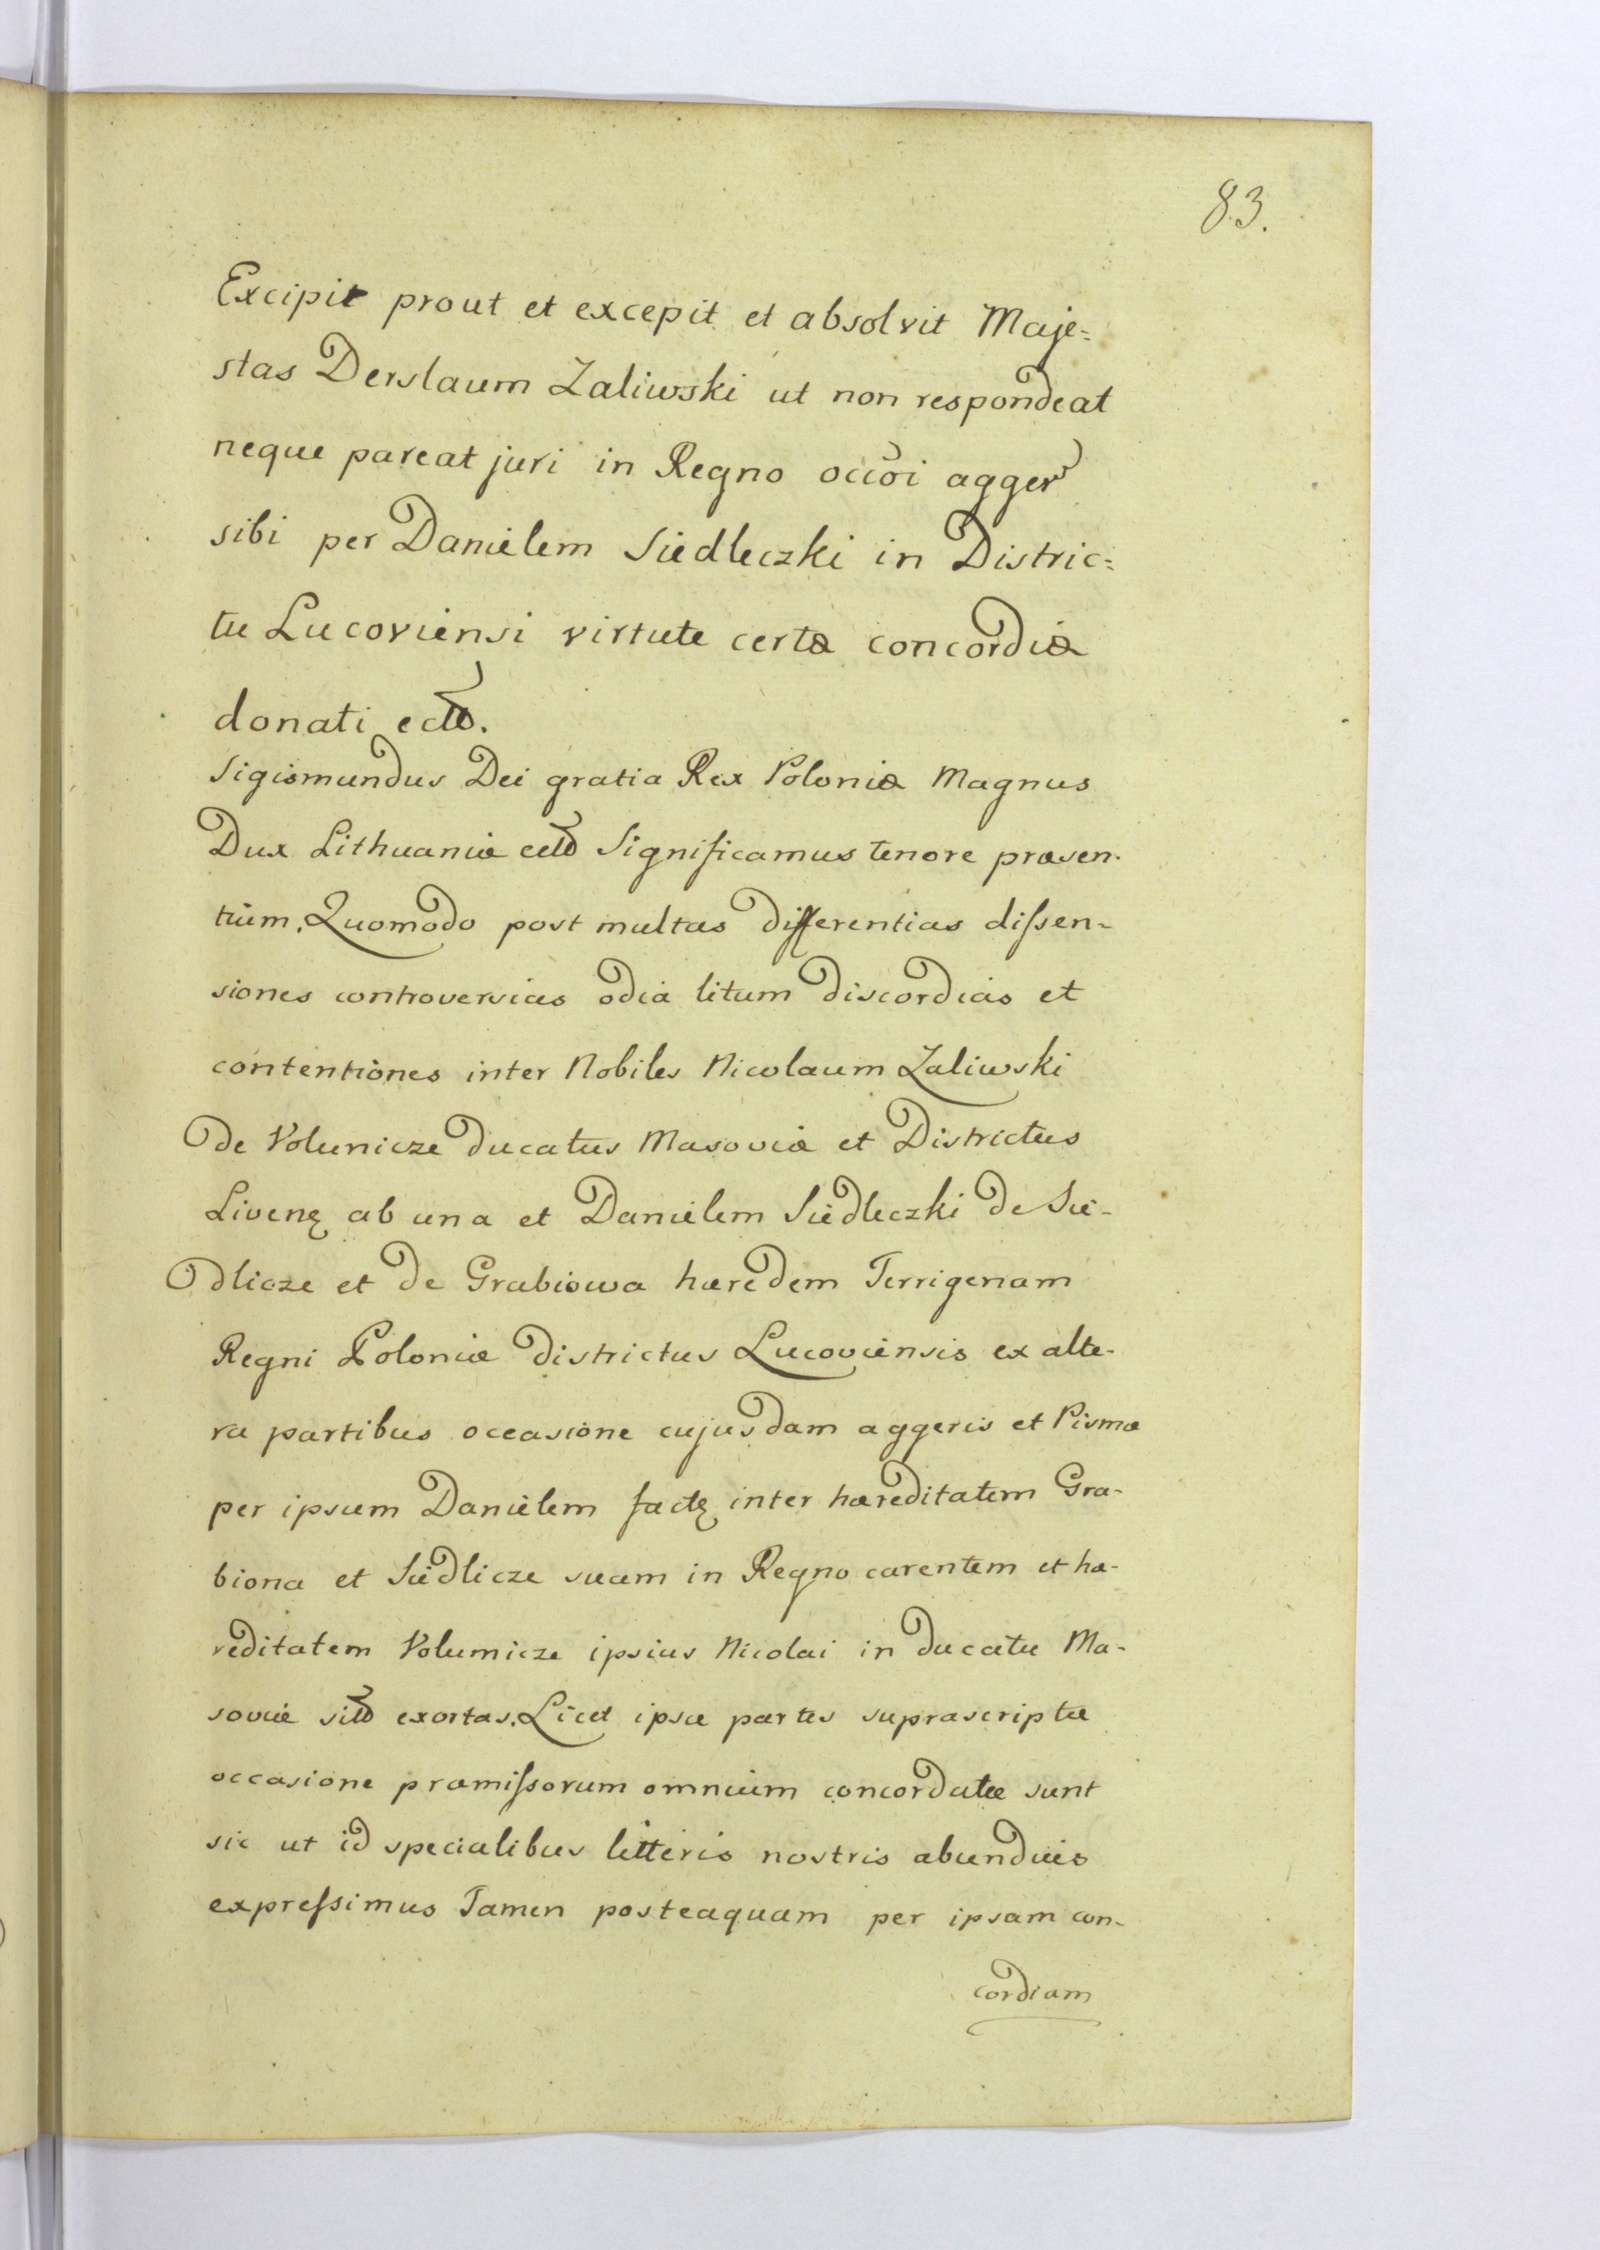 83.
Excipit prout et excepit et absolvit Maje=
stas Derslaum Zaliwski ut non respondeat
neque pareat juri in Regno occōi agger
sibi per Danielem Siedleczki in Distric=
tu Lucoviensi virtute certæ concordiæ
donati
Sigismundus Dei gratia Rex Poloniæ Magnus
Dux Lithuaniæ Significamus tenore præsen-
tium. Quomodo post multas differentias dißen-
siones controversias odia litum discordias et
contentiones inter Nobiles Nicolaum Zaliwski
de Volunicze ducatus Masoviæ et Districtus
Livenę ab una et Danielem Siedleczki de Sie-
dlicze et de Grabiowa hæredem Terrigenam
Regni Poloniæ districtus Lucoviensis ex alte-
ra partibus occasione cujusdam aggeris et Pismæ
per ipsum Danielem factę inter hæreditatem Gra-
biona et Siedlicze suam in Regno carentem et hæ-
reditatem Volumicze ipsius Nicolai in ducatu Ma-
soviæ exortas. Licet ipsæ partes suprascriptæ
occasione præmißorum omnium concordatæ sunt
sic ut id specialibus litteris nostris abundius
expreßimus Tamen posteaquam per ipsam con-
cordiam